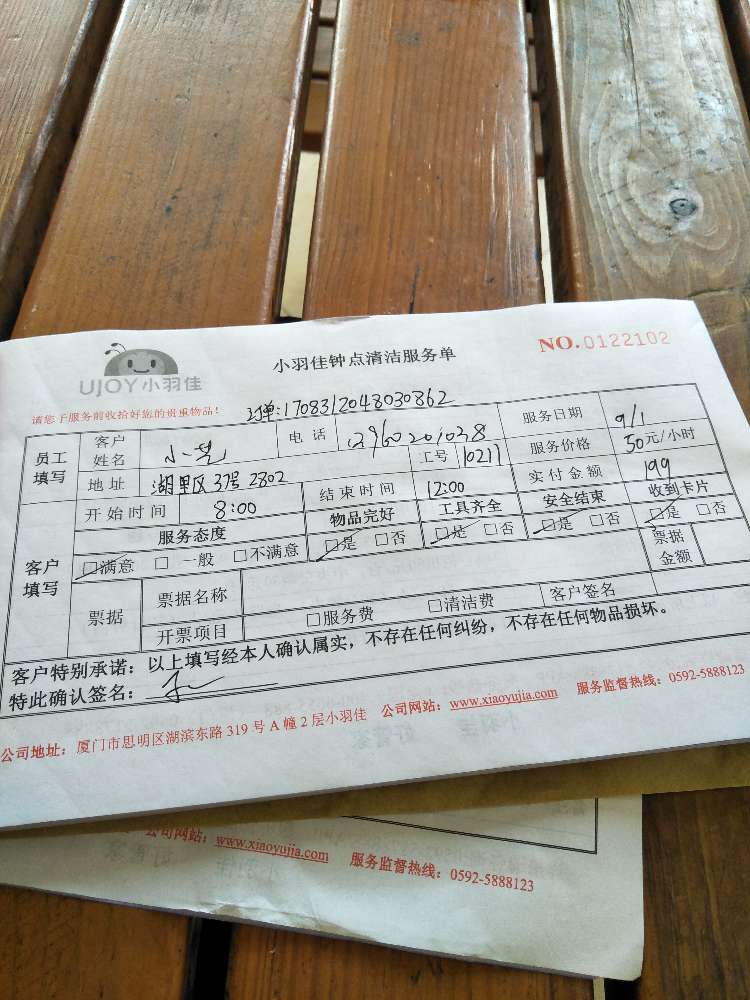 UJOY小羽佳
小羽佳钟点清洁服务单
NO.0122102
请您于服务前收拾好您的贵重物品!
订单:1708312048030862
员工填写 客户姓名 小芝 电话 服务日期 9/1
地址 湖里区37号2802 工号 10217 服务价格 50元/小时
开始时间 8:00 结束时间 12:00 实付金额 199
客户填写 服务态度 物品完好 工具齐全 安全结束 收到卡片
□满意 □一般 □不满意 □是 □否 □是 □否 □是 □否 □是 □否
票据 票据名称 票据金额
开票项目 □服务费 □清洁费 客户签名
客户特别承诺：以上填写经本人确认属实，不存在任何纠纷，不存在任何物品损坏。
特此确认签名：
公司地址：厦门市思明区湖滨东路319号A幢2层小羽佳 公司网站：www.xiaoyujia.com 服务监督热线：0592-5888123
公司网站：www.xiaoyujia.com 服务监督热线：0592-5888123